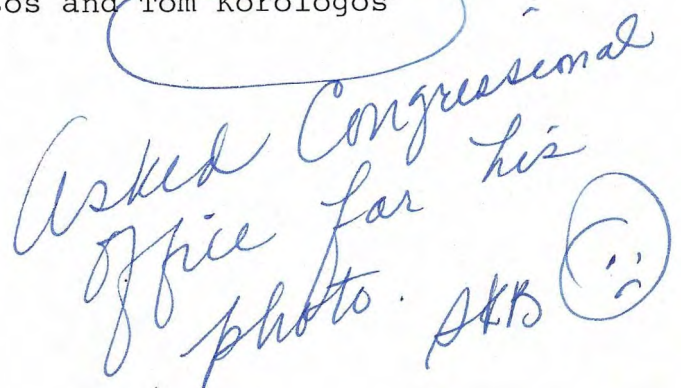 os and Tom Korologos
Asked Congressional
office for his
photo. SKB